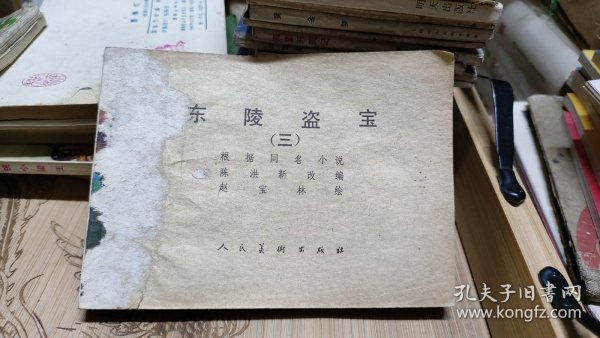 东陵盗宝
（三）
根据同名小说
陈洪新改编
赵宝林绘
人民美術出版社
孔夫子旧书网
www.kongfz.com